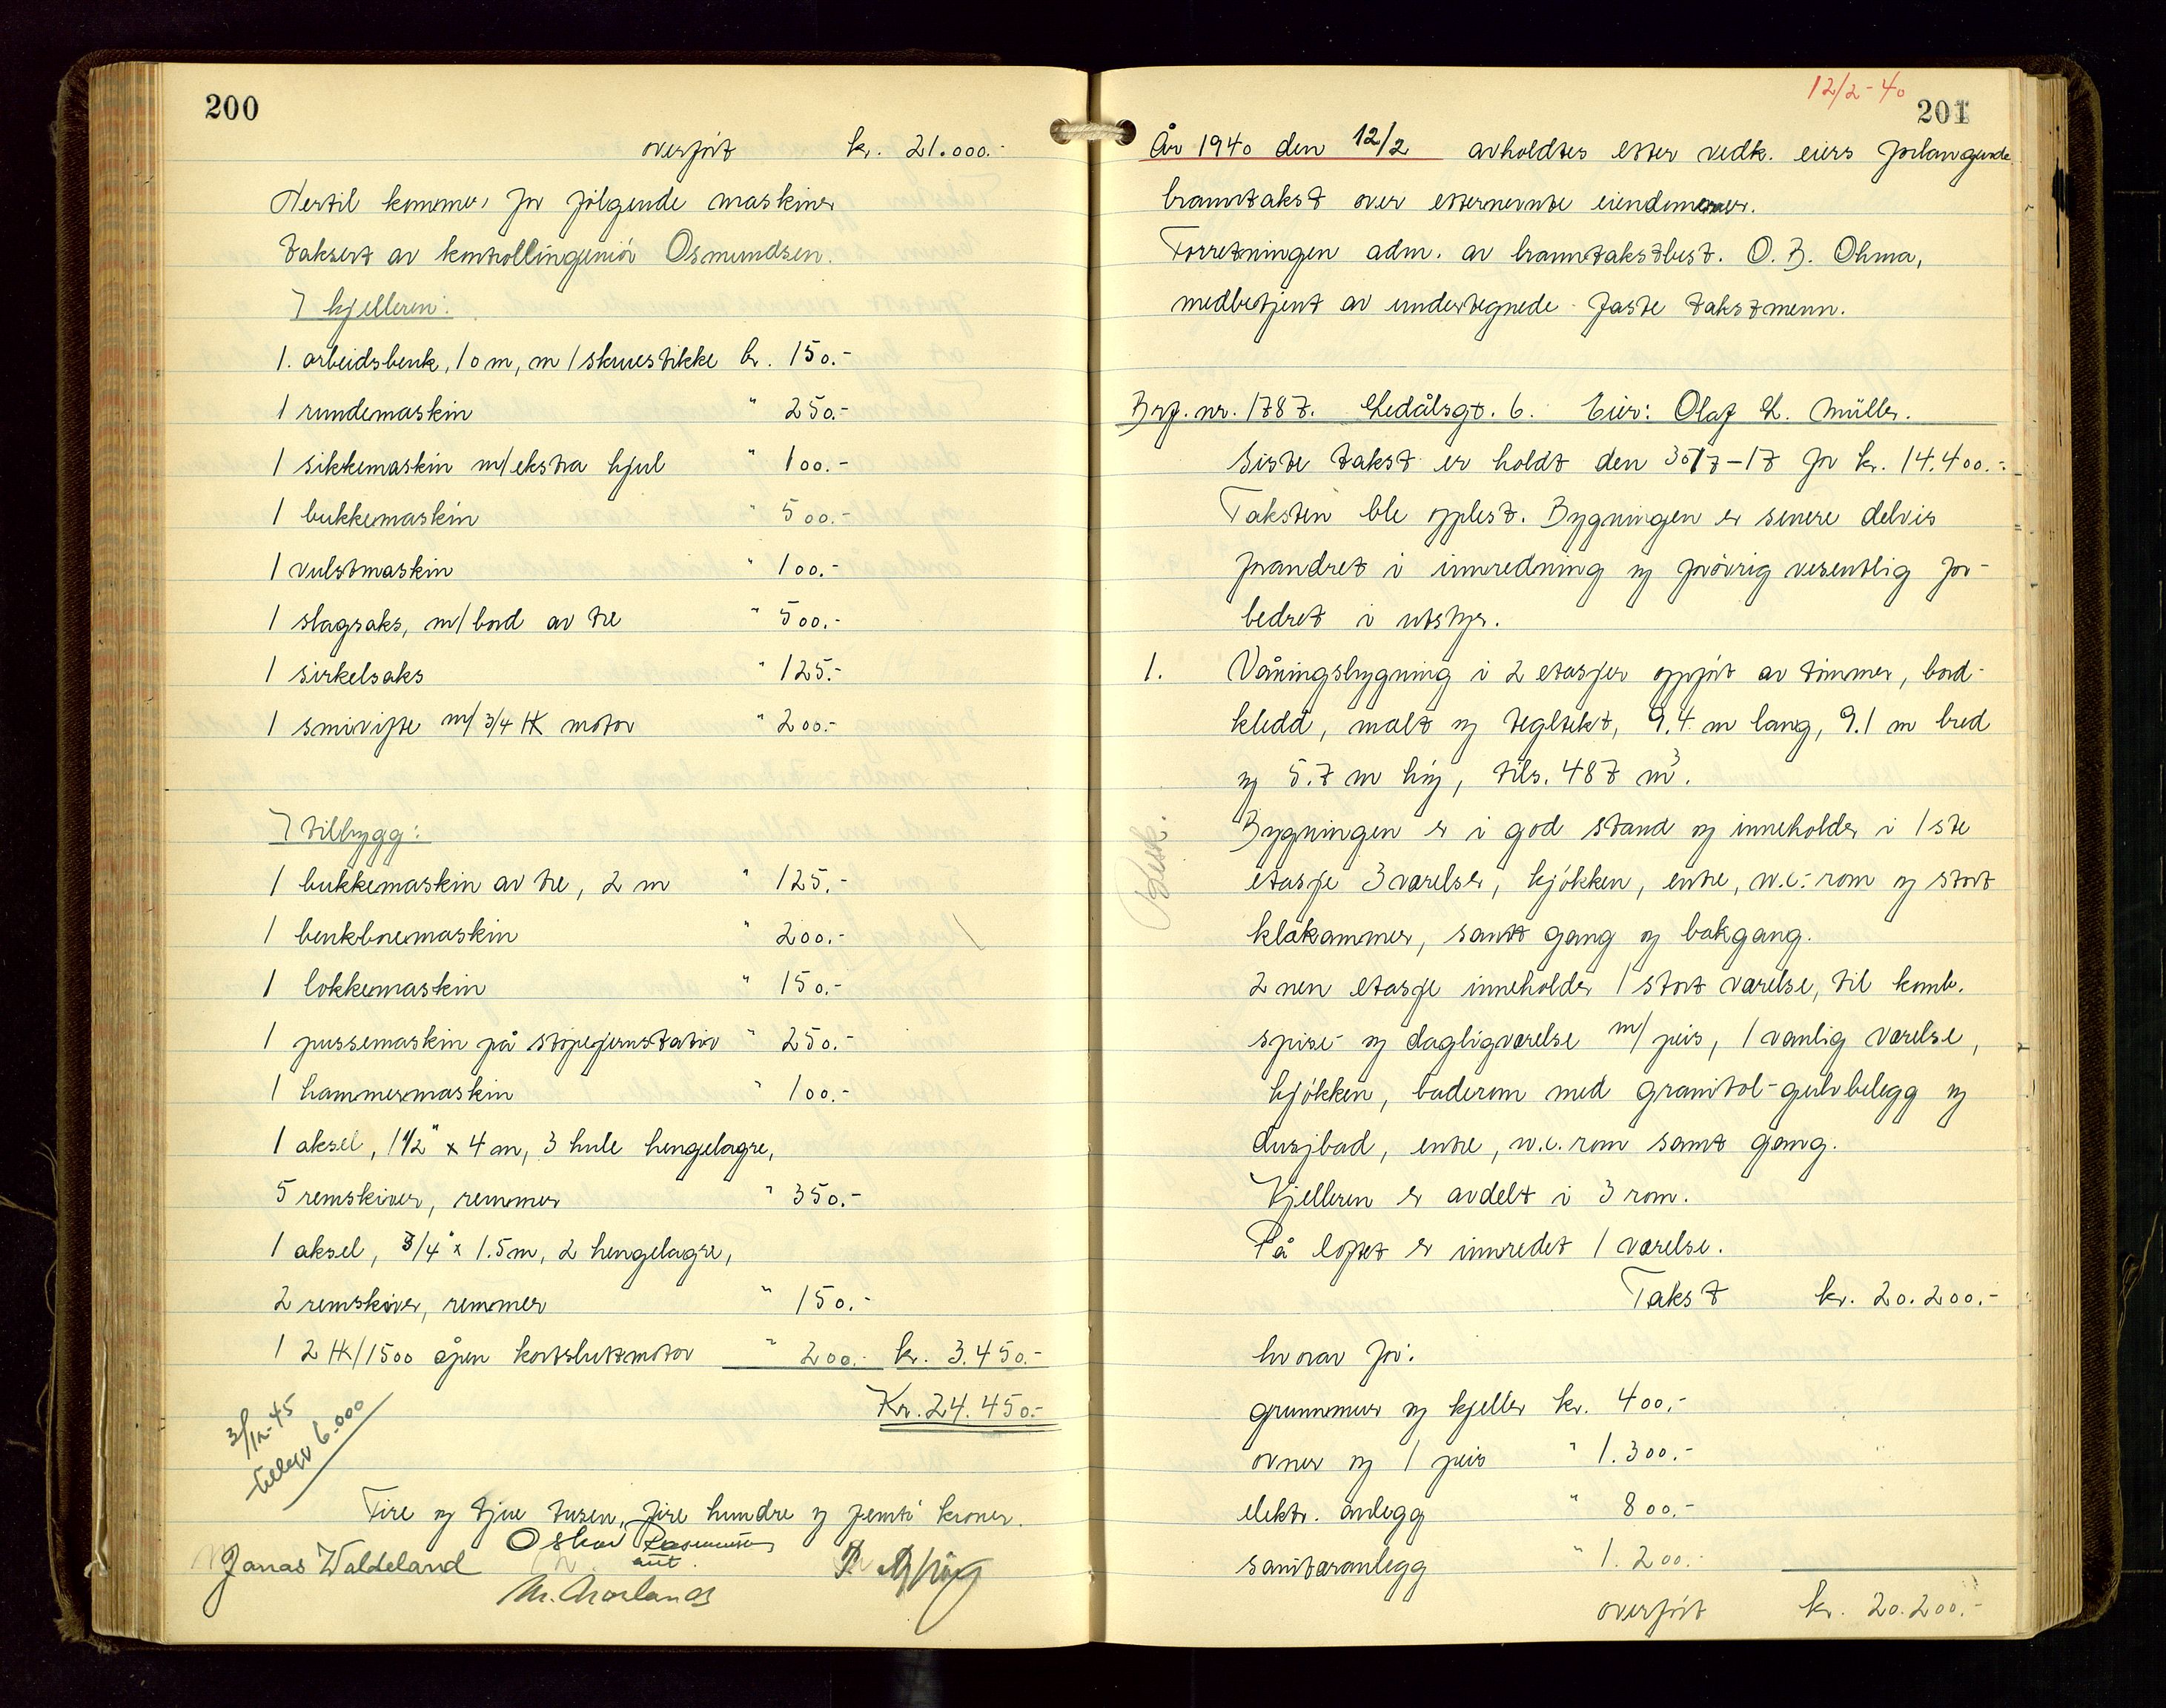 200
overført kr. 21.000.-
Hertil kommer for følgende maskiner
taksert av kontrollingeniør Osmundsen.
I kjelleren:
1. arbeidsbenk, 10 m, m/skruestikke kr. 150.-
1 rundemaskin " 250.-
1 sikkemaskin m/ekstra hjul " 100.-
1 bukkemaskin " 500.-
1 vulstmaskin " 100.-
1 slagsaks, m/bord av tre " 500.-
1 sirkelsaks " 125.-
1 smivifte m/ 3/4 HK motor " 200.-
I tilbygg:
1 bukkemaskin av tre, 2 m " 125.-
1 benkboremaskin " 200.-
1 lokkemaskin " 150.-
1 pussemaskin på støpejernstativ " 250.-
1 hammermaskin " 100.-
1 aksel, 1 1/2" x 4 m, 3 hule hengelagre,
5 remskiver, remmer " 350.-
1 aksel, 3/4" x 1.5 m, 2 hengelagre,
2 remskiver, remmer " 150.-
1 2 HK/1500 åpen kortsluttmotor " 200.- kr. 3.450.-
Kr. 24.450.-
3/12-45
tillegg 6.000
Fire og tjue tusen, fire hundre og femti kroner.
Jonas Waldeland Oskar Rasmussen
M. Morland
12/2-40
201
År 1940 den 12/2 avholdtes etter vedk. eiers forlangende
branntakst over etternevnte eiendommer.
Forretningen adm. av branntakstbest. O. B. Ohma,
medbetjent av undertegnede faste takstmenn.
Brf. nr. 1787. Ledålsgt. 6. Eier: Olaf L. Müller.
Siste takst er holdt den 30/7-17 for kr. 14.400.-
Taksten ble opplest. Bygningen er senere delvis
forandret i innredning og forøvrig vesentlig for-
bedret i utstyr.
1. Våningsbygning i 2 etasjer oppført av tømmer, bord-
kledd, malt og tegltekt, 9.4 m lang, 9.1 m bred
og 5.7 m høy, tils. 487 m³.
Besk.
Bygningen er i god stand og inneholder i 1ste
etasje 3 værelser, kjøkken, entre, w.c.-rom og stort
klækammer, samt gang og bakgang.
2nen etasje inneholder 1 stort værelse, til komb.
spise- og dagligværelse m/ peis, 1 vanlig værelse,
kjøkken, baderom med granitol-gulvbelegg og
dusjbad, entre, w.c. rom samt gang.
Kjelleren er avdelt i 3 rom.
På loftet er innredet 1 værelse.
Takst kr. 20.200.-
hvorav for:
grunnmur og kjeller kr. 400.-
ovner og 1 peis " 1.300.-
elektr. anlegg " 800.-
sanitæranlegg " 1.200.-
overført kr. 20.200.-